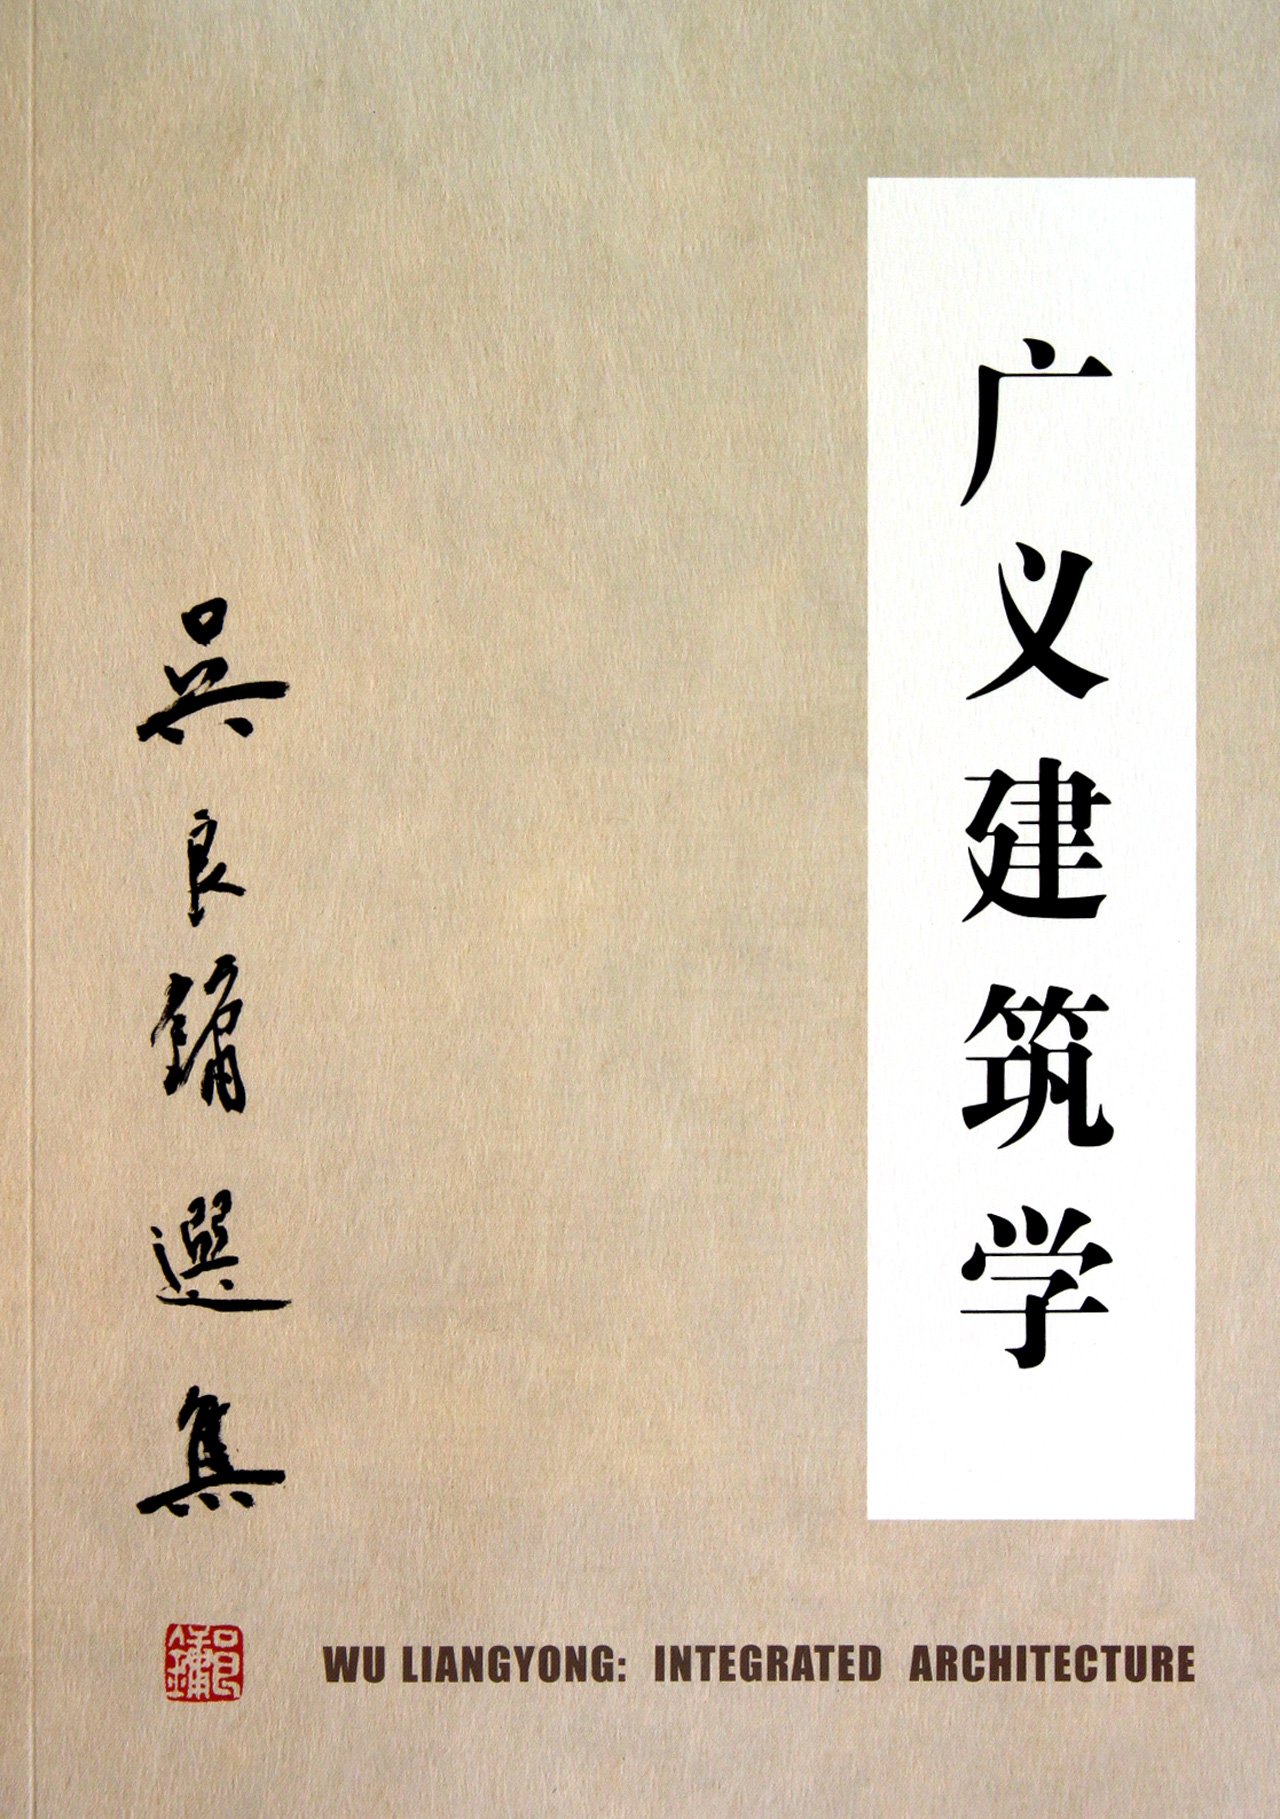 广义建筑学
吳良鏞選集
WU LIANGYONG: INTEGRATED ARCHITECTURE